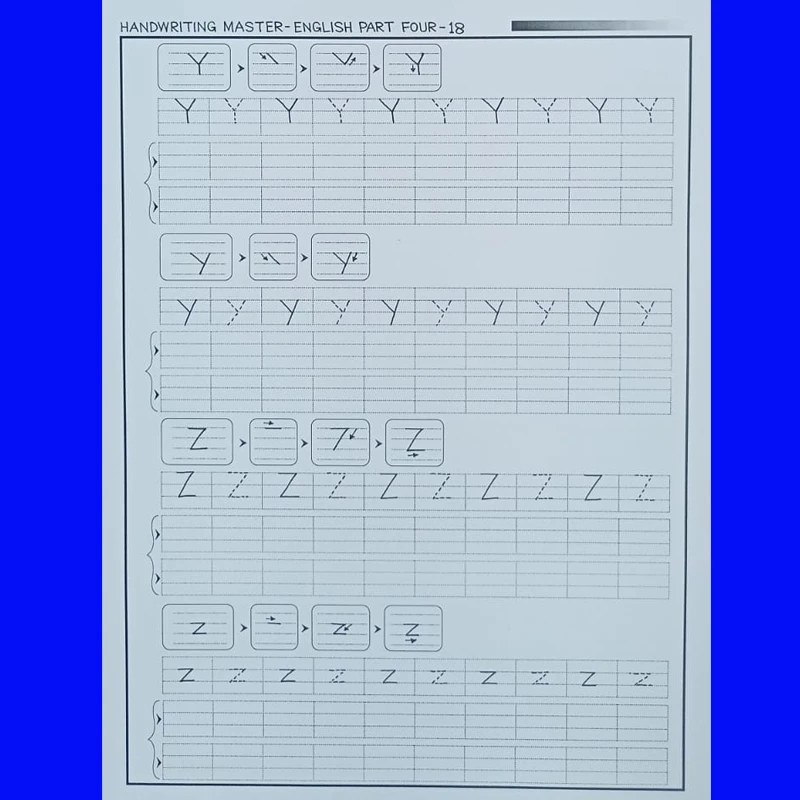 HANDWRITING MASTER-ENGLISH PART FOUR-18
Y Y
Y Y Y Y Y Y Y Y Y Y
y y
y y y y y y y y y y
Z Z
Z Z Z Z Z Z Z Z Z Z
z z z
z z z z z z z z z z